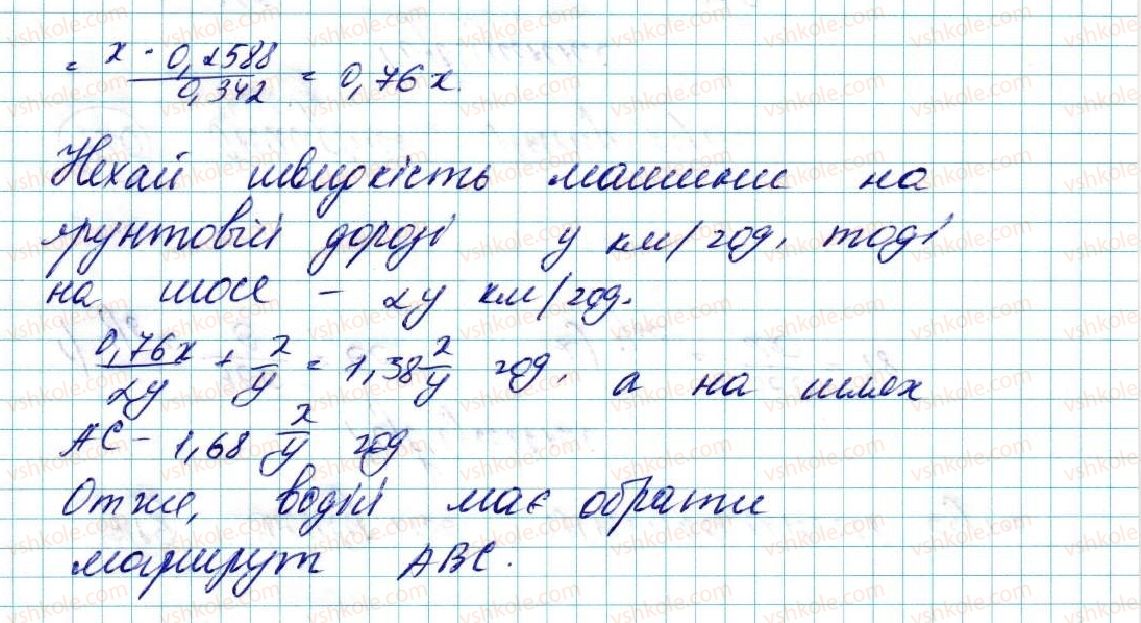 = x · 0,2588 / 0,342 = 0,76x.
Нехай швидкість машини на
ґрунтовій дорозі y км/год, тоді
на шосе – 2y км/год.
0,76x / 2y + x / y = 1,38 x / y год, а на шлях
AC – 1,68 x / y год
Отже, водій має обрати
маршрут ABC.